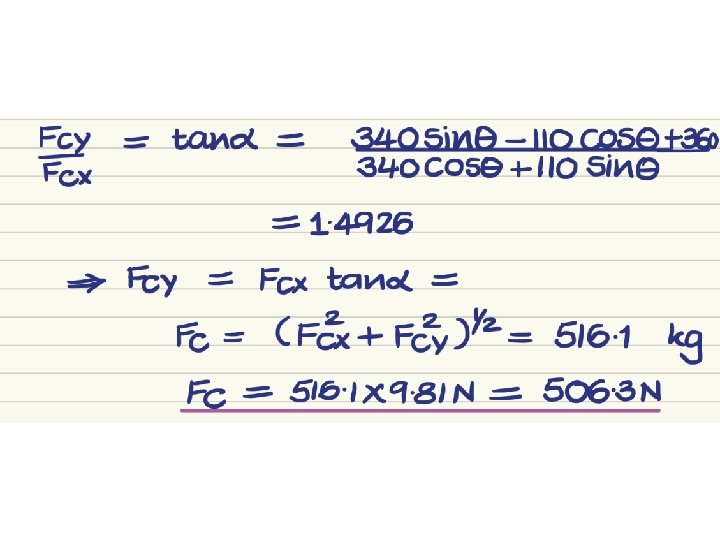 Fcy = tanα = 340 sinθ - 110 cosθ + 360
Fcx 340 cosθ + 110 sinθ
= 1.4926
⇒ Fcy = Fcx tanα =
Fc = (Fcx² + Fcy²)^1/2 = 516.1 kg
Fc = 516.1 x 9.81 N = 506.3 N